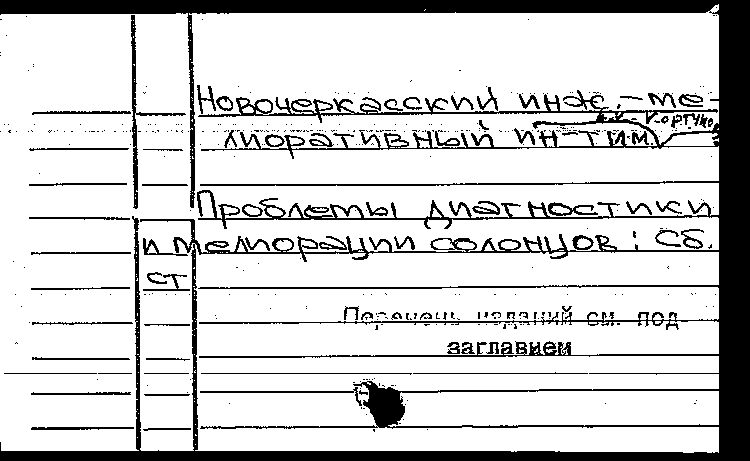 Новочеркасский инж.-ме-
лиоративный ин-т им.
Проблемы диагностики
и мелиорации солонцов : Сб.
ст
Перечень изданий см. под
заглавием